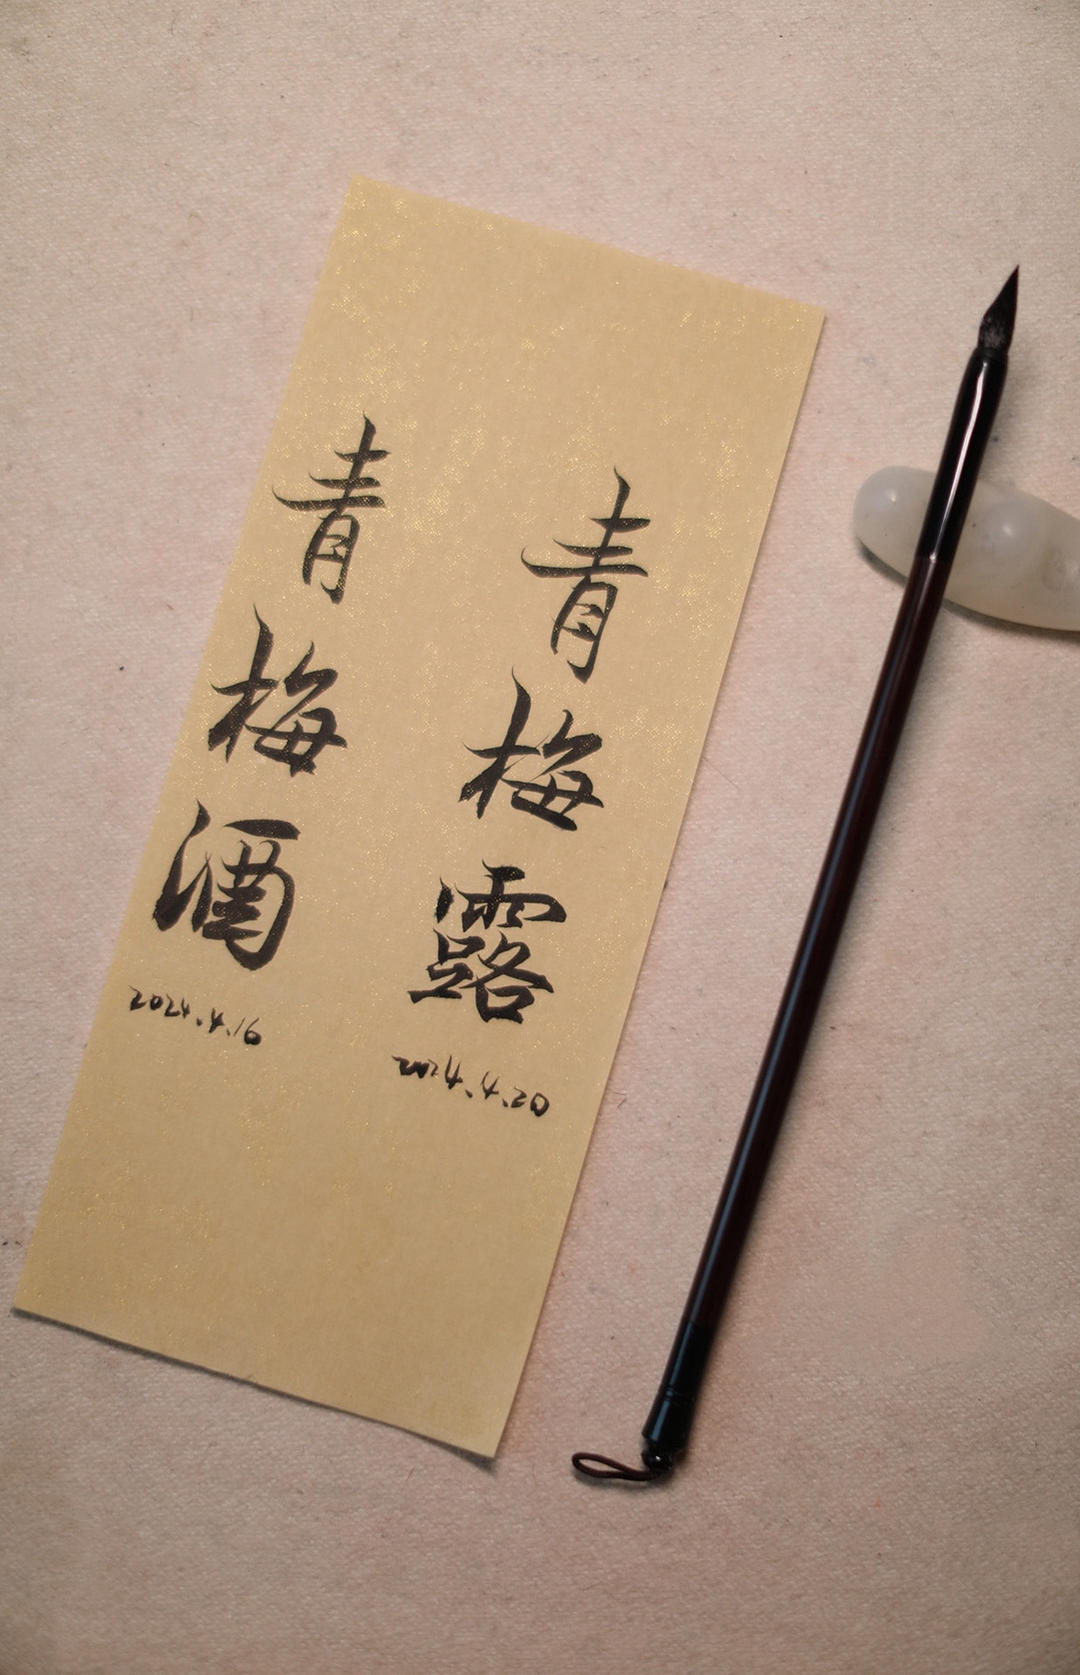 青梅露
2024.4.20
青梅酒
2024.4.16